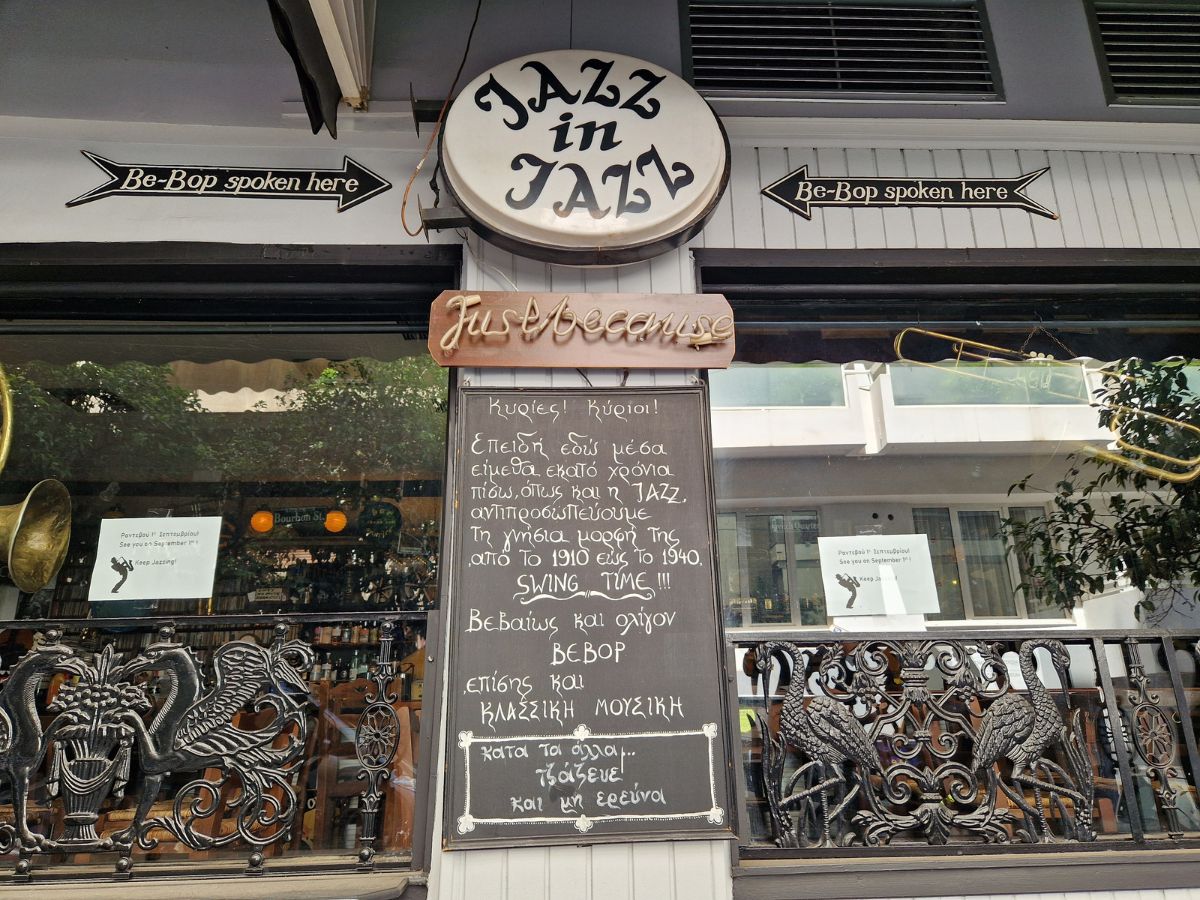 JAZZ
in
JAZZ
Be-Bop spoken here
Be-Bop spoken here
Just because
Κυρίες! Κύριοι!
Επειδή εδώ μέσα
είμεθα εκατό χρόνια
πίσω, όπως και η JAZZ,
αντιπροσωπεύουμε
τη γνήσια μορφή της
από το 1910 εώς το 1940.
SWING TIME!!!
Βεβαίως και ολίγον
BEBOP
επίσης και
ΚΛΑΣΣΙΚΗ ΜΟΥΣΙΚΗ
κατα τα άλλα...
τζάζευε
και μη ερεύνα
Bourbon St.
Ραντεβού 1η Σεπτεμβρίου!
See you on September 1st!
Keep Jazzing!
Ραντεβού 1η Σεπτεμβρίου!
See you on September 1st!
Keep Jazzing!